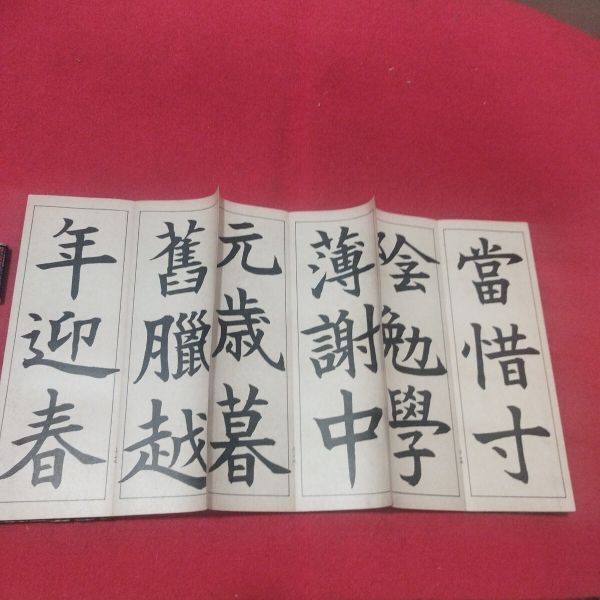 當惜寸
陰勉學
薄謝中
元歳暮
舊臘越
年迎春